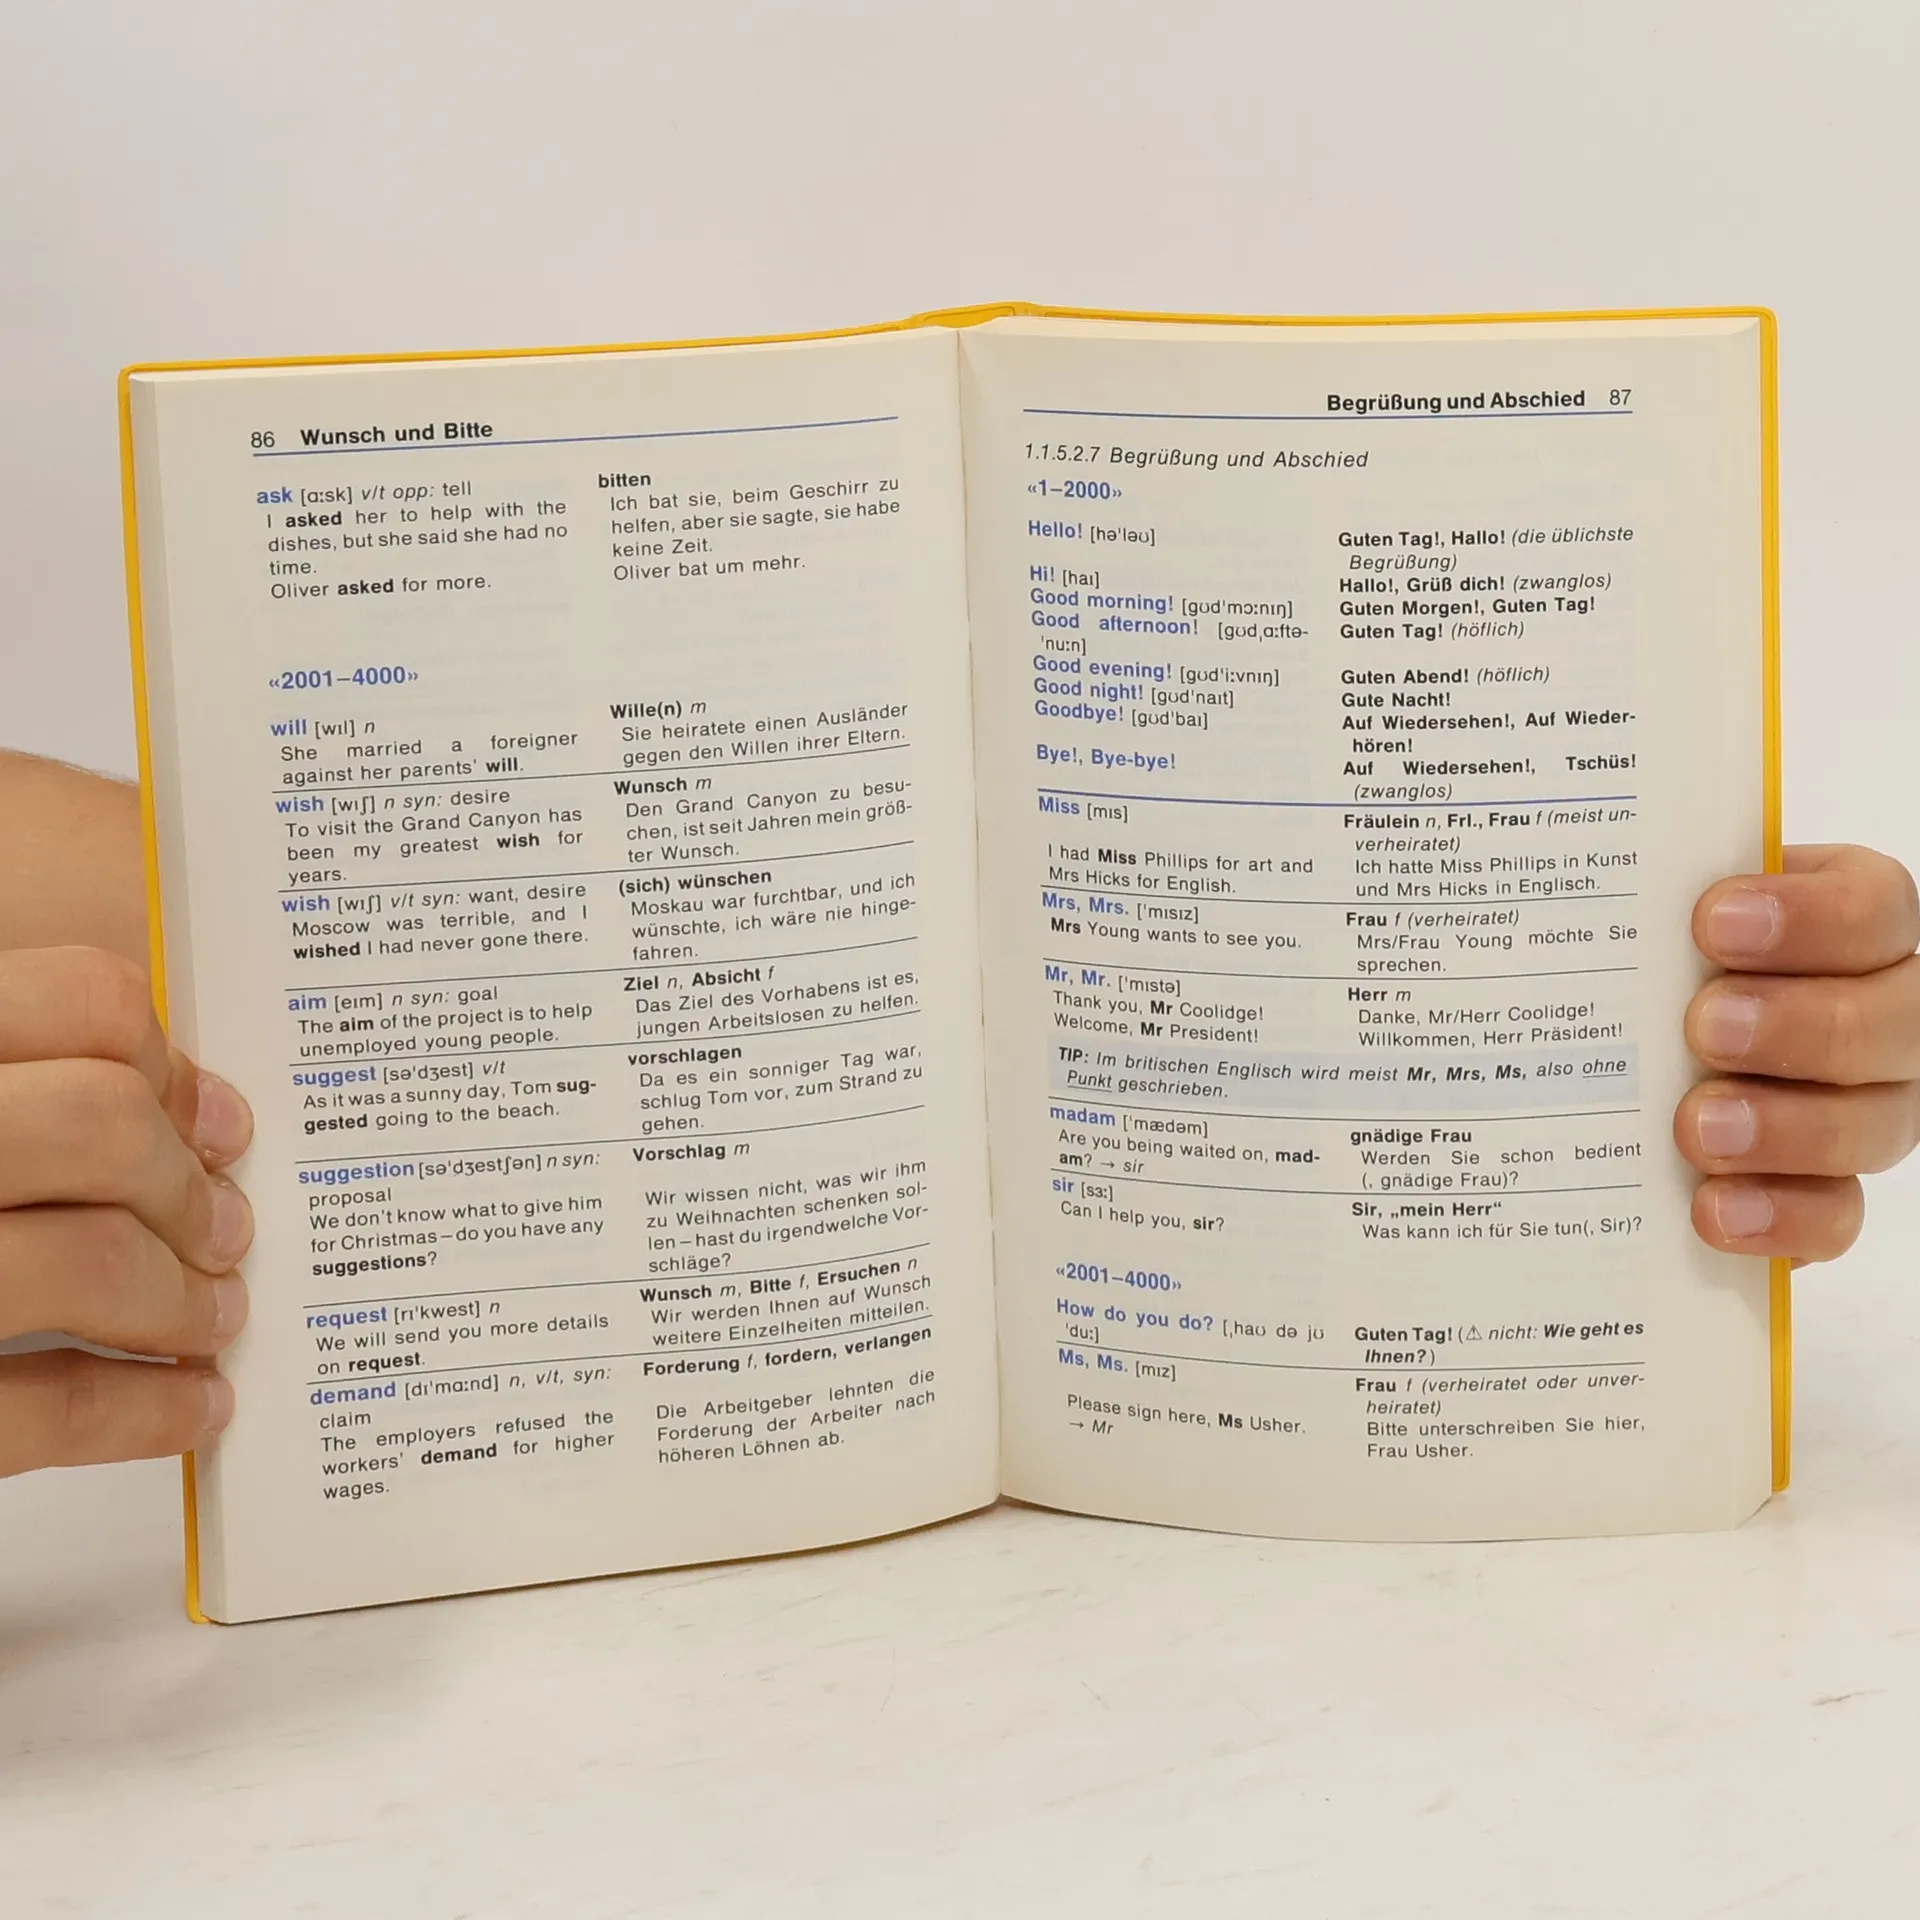 86 Wunsch und Bitte
ask [ɑːsk] v/t opp: tell
I asked her to help with the
dishes, but she said she had no
time.
Oliver asked for more.
bitten
Ich bat sie, beim Geschirr zu
helfen, aber sie sagte, sie habe
keine Zeit.
Oliver bat um mehr.
«2001–4000»
will [wɪl] n
She married a foreigner
against her parents' will.
Wille(n) m
Sie heiratete einen Ausländer
gegen den Willen ihrer Eltern.
wish [wɪʃ] n syn: desire
To visit the Grand Canyon has
been my greatest wish for
years.
Wunsch m
Den Grand Canyon zu besu-
chen, ist seit Jahren mein größ-
ter Wunsch.
wish [wɪʃ] v/t syn: want, desire
Moscow was terrible, and I
wished I had never gone there.
(sich) wünschen
Moskau war furchtbar, und ich
wünschte, ich wäre nie hinge-
fahren.
aim [eɪm] n syn: goal
The aim of the project is to help
unemployed young people.
Ziel n, Absicht f
Das Ziel des Vorhabens ist es,
jungen Arbeitslosen zu helfen.
suggest [sə'dʒest] v/t
As it was a sunny day, Tom sug-
gested going to the beach.
vorschlagen
Da es ein sonniger Tag war,
schlug Tom vor, zum Strand zu
gehen.
suggestion [sə'dʒestʃən] n syn:
proposal
We don't know what to give him
for Christmas – do you have any
suggestions?
Vorschlag m
Wir wissen nicht, was wir ihm
zu Weihnachten schenken sol-
len – hast du irgendwelche Vor-
schläge?
request [rɪ'kwest] n
We will send you more details
on request.
Wunsch m, Bitte f, Ersuchen n
Wir werden Ihnen auf Wunsch
weitere Einzelheiten mitteilen.
demand [dɪ'mɑːnd] n, v/t, syn:
claim
The employers refused the
workers' demand for higher
wages.
Forderung f, fordern, verlangen
Die Arbeitgeber lehnten die
Forderung der Arbeiter nach
höheren Löhnen ab.
Begrüßung und Abschied 87
1.1.5.2.7 Begrüßung und Abschied
«1–2000»
Hello! [hə'ləʊ]
Guten Tag!, Hallo! (die üblichste
Begrüßung)
Hi! [haɪ]
Hallo!, Grüß dich! (zwanglos)
Good morning! [gʊd'mɔːnɪŋ]
Guten Morgen!, Guten Tag!
Good afternoon! [gʊdˌɑːftə-
'nuːn]
Guten Tag! (höflich)
Good evening! [gʊd'iːvnɪŋ]
Guten Abend! (höflich)
Good night! [gʊd'naɪt]
Gute Nacht!
Goodbye! [gʊd'baɪ]
Auf Wiedersehen!, Auf Wieder-
hören!
Bye!, Bye-bye!
Auf Wiedersehen!, Tschüs!
(zwanglos)
Miss [mɪs]
I had Miss Phillips for art and
Mrs Hicks for English.
Fräulein n, Frl., Frau f (meist un-
verheiratet)
Ich hatte Miss Phillips in Kunst
und Mrs Hicks in Englisch.
Mrs, Mrs. ['mɪsɪz]
Mrs Young wants to see you.
Frau f (verheiratet)
Mrs/Frau Young möchte Sie
sprechen.
Mr, Mr. ['mɪstə]
Thank you, Mr Coolidge!
Welcome, Mr President!
Herr m
Danke, Mr/Herr Coolidge!
Willkommen, Herr Präsident!
TIP: Im britischen Englisch wird meist Mr, Mrs, Ms, also ohne
Punkt geschrieben.
madam ['mædəm]
Are you being waited on, mad-
am? → sir
gnädige Frau
Werden Sie schon bedient
(, gnädige Frau)?
sir [sɜː]
Can I help you, sir?
Sir, „mein Herr“
Was kann ich für Sie tun(, Sir)?
«2001–4000»
How do you do? [ˌhaʊ də jʊ
'duː]
Guten Tag! (⚠ nicht: Wie geht es
Ihnen?)
Ms, Ms. [mɪz]
Please sign here, Ms Usher.
→ Mr
Frau f (verheiratet oder unver-
heiratet)
Bitte unterschreiben Sie hier,
Frau Usher.